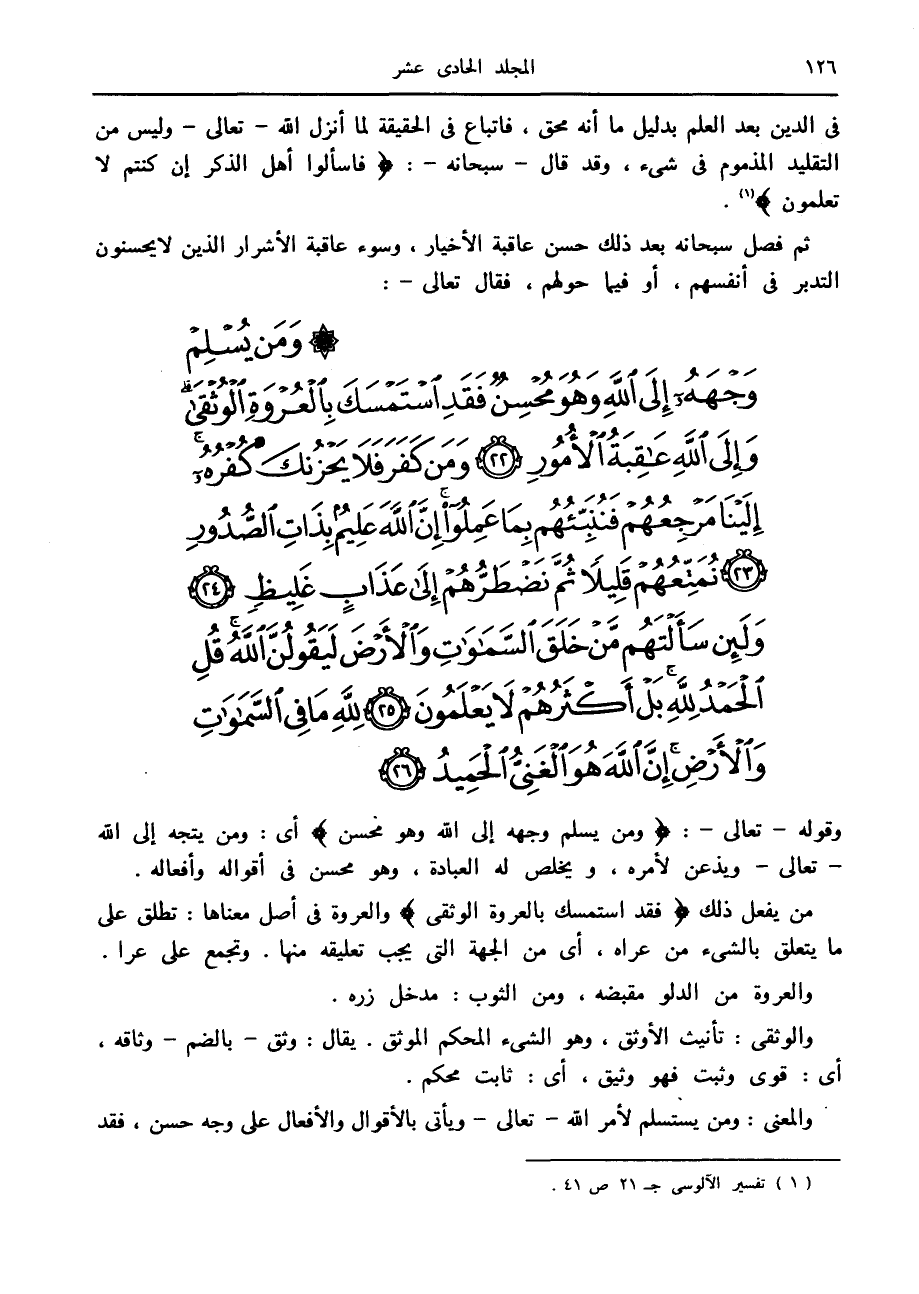 ١٢٦ المجلد الحادى عشر
فى الدين بعد العلم بدليل ما أنه محق ، فاتباع فى الحقيقة لما أنزل الله – تعالى – وليس من
التقليد المذموم فى شىء ، وقد قال – سبحانه – : ﴿ فاسألوا أهل الذكر إن كنتم لا
تعلمون ﴾(١) .
ثم فصل سبحانه بعد ذلك حسن عاقبة الأخيار ، وسوء عاقبة الأشرار الذين لايحسنون
التدبر فى أنفسهم ، أو فيما حولهم ، فقال تعالى – :
۞ وَمَن يُسْلِمْ
وَجْهَهُۥٓ إِلَى ٱللَّهِ وَهُوَ مُحْسِنٌ فَقَدِ ٱسْتَمْسَكَ بِٱلْعُرْوَةِ ٱلْوُثْقَىٰ ۗ
وَإِلَى ٱللَّهِ عَـٰقِبَةُ ٱلْأُمُورِ ﴿٢٢﴾ وَمَن كَفَرَ فَلَا يَحْزُنكَ كُفْرُهُۥٓ ۚ
إِلَيْنَا مَرْجِعُهُمْ فَنُنَبِّئُهُم بِمَا عَمِلُوٓا۟ ۚ إِنَّ ٱللَّهَ عَلِيمٌۢ بِذَاتِ ٱلصُّدُورِ
﴿٢٣﴾ نُمَتِّعُهُمْ قَلِيلًا ثُمَّ نَضْطَرُّهُمْ إِلَىٰ عَذَابٍ غَلِيظٍ ﴿٢٤﴾
وَلَئِن سَأَلْتَهُم مَّنْ خَلَقَ ٱلسَّمَـٰوَٰتِ وَٱلْأَرْضَ لَيَقُولُنَّ ٱللَّهُ ۚ قُلِ
ٱلْحَمْدُ لِلَّهِ ۚ بَلْ أَكْثَرُهُمْ لَا يَعْلَمُونَ ﴿٢٥﴾ لِلَّهِ مَا فِى ٱلسَّمَـٰوَٰتِ
وَٱلْأَرْضِ ۚ إِنَّ ٱللَّهَ هُوَ ٱلْغَنِىُّ ٱلْحَمِيدُ ﴿٢٦﴾
وقوله – تعالى – : ﴿ ومن يسلم وجهه إلى الله وهو محسن ﴾ أى : ومن يتجه إلى الله
– تعالى – ويذعن لأمره ، و يخلص له العبادة ، وهو محسن فى أقواله وأفعاله .
من يفعل ذلك ﴿ فقد استمسك بالعروة الوثقى ﴾ والعروة فى أصل معناها : تطلق على
ما يتعلق بالشىء من عراه ، أى من الجهة التى يجب تعليقه منها . وتجمع على عرا .
والعروة من الدلو مقبضه ، ومن الثوب : مدخل زره .
والوثقى : تأنيث الأوثق ، وهو الشىء المحكم الموثق . يقال : وثق – بالضم – وثاقه ،
أى : قوى وثبت فهو وثيق ، أى : ثابت محكم .
والمعنى : ومن يستسلم لأمر الله – تعالى – ويأتى بالأقوال والأفعال على وجه حسن ، فقد
( ١ ) تفسير الآلوسى جـ ٢١ ص ٤١ .